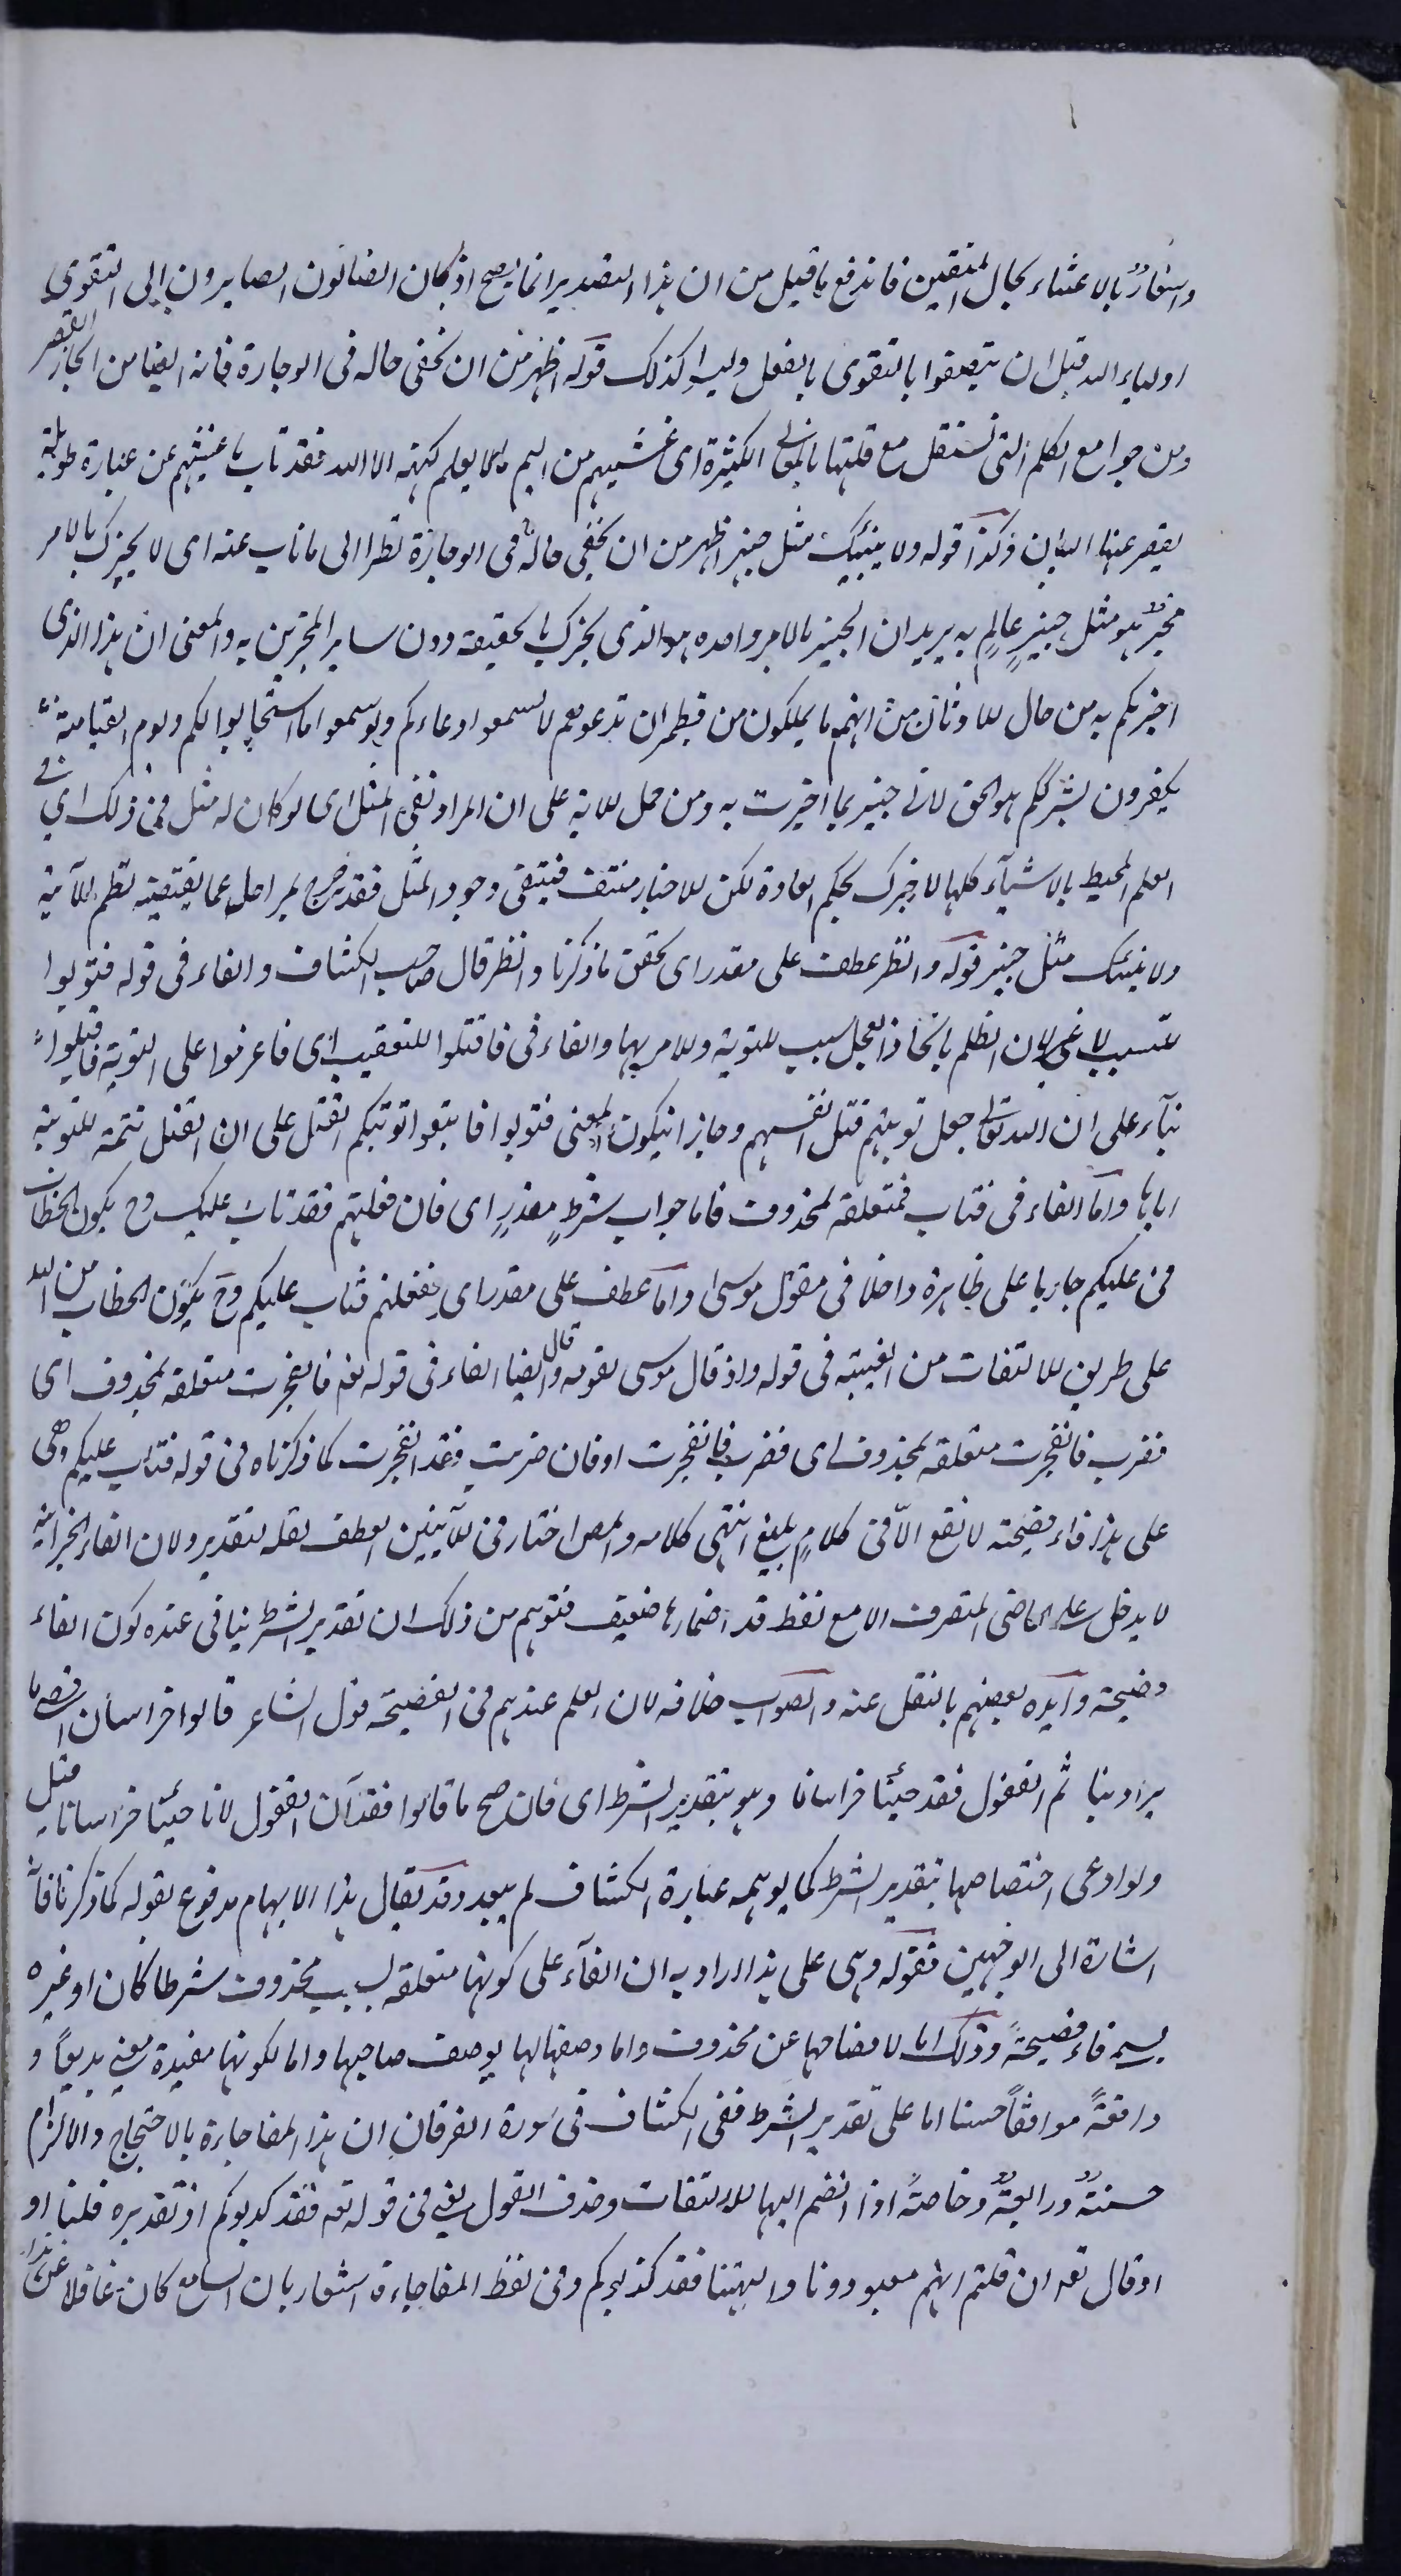 واشعارٌ بالاعتناء بحال المتقين فاندفع ما قيل من ان هذا التقدير انما يصح اذ لو كان الضالون الصايرون الى التقوى
اولياء الله قبل ان يتصفوا بالتقوى بالفعل وليس كذلك قوله اظهر من ان يخفى حاله فى الوجازة فانه ايضا من ايجاز القصر
ومن جوامع الكلم التى تستقل مع قلتها بالمعانى الكثيرة اى غشيهم من اليم ما لا يعلم كنهه الا الله فقد ناب ما غشيهم عن عبارة طويلة
يقصر عنها البيان وكذا قوله ولا ينبئك مثل خبير اظهر من ان يخفى حاله فى الوجازة نظرا الى ما ناب عنه اى لا يخبرك بالامر
مخبرٌ هو مثل خبيرٍ عالمٍ به يريد ان الخبير بالامر وحده هو الذى يخبرك بالحقيقة دون ساير المخبرين به والمعنى ان هذا الذى
اخبركم به من حال الاوثان من انهم ما يملكون من قطمير ان تدعوهم لا يسمعوا دعاءكم ولو سمعوا ما استجابوا لكم ويوم القيامة
يكفرون بشرككم هو الحق لانى خبير بما اخبرت به ومن حمل الاية على ان المراد نفى المثل اى لو كان له مثل فى ذلك اى فى
العلم المحيط بالاشياء كلها لاخبرك بحكم العادة لكن الاخبار منتف فينتفى وجود المثل فقد خرج بمراحل عما يقتضيه نظم الآية
ولا ينبئك مثل خبير قوله وانظر عطف على مقدر اى تحقق ما ذكرنا وانظر قال صاحب الكشاف والفاء فى قوله فتوبوا
للتسبيب لا غير لان الظلم باتخاذ العجل سبب للتوبة وللامر بها والفاء فى فاقتلوا للتعقيب اى فاعزموا على التوبة فاقتلوا
بناء على ان الله تعالى جعل توبتهم قتل انفسهم وجاز ان يكون المعنى فتوبوا فاتبعوا توبتكم القتل على ان القتل تتمة للتوبة
اياها واما الفاء فى فتاب فمتعلقة بمحذوف فاما جواب شرطٍ مقدرٍ اى فان فعلتم فقد تاب عليكم وح يكون الخطاب
فى عليكم جاريا على ظاهره داخلا فى مقول موسى واما عطف على مقدر اى ففعلتم فتاب عليكم وح يكون الخطاب من الله
على طريق الالتفات من الغيبة فى قوله واذ قال موسى لقومه وقال ايضا الفاء فى قوله تع فانفجرت متعلقة بمحذوف اى
فضرب فانفجرت متعلقة بمحذوف اى فضرب فانفجرت او فان ضربت فقد انفجرت كما ذكرناه فى قوله فتاب عليكم وهى
على هذا فاء فصيحة لا تقع الّا فى كلامٍ بليغ انتهى كلامه والمص اختار فى الآيتين العطف لقلة التقدير ولان الفاء الجزائية
لا يدخل على الماضى المتصرف الا مع لفظ قد اضمارها ضعيف فتوهم من ذلك ان تقدير الشرط ينافى عنده كون الفاء
فصيحة وايده بعضهم بالنقل عنه والصواب خلافه لان العلم عندهم فى الفصيحة قول الشاعر قالوا خراسان اقصى ما
يراد بنا ثم القفول فقد جئنا خراسانا وهو بتقدير الشرط اى فان صح ما قالوا فقد آن القفول لانا جئنا خراسانا مثل
ولو ادعى اختصاصها بتقدير الشرط كما يوهمه عبارة الكشاف لم يبعد وقد يقال هذا الايهام مدفوع بقوله كما ذكرنا فانه
اشارة الى الوجهين فقوله وهى على هذا اراد به ان الفاء على كونها متعلقة بسبب محذوف شرطا كان او غيره
يسمى فاء فصيحةً وذلك اما لافصاحها عن محذوف واما وصفها لها بوصف صاحبها واما لكونها مفيدة معنى بديعاً و
واقعةً موافقاً حسنا اما على تقدير الشرط ففى الكشاف فى سورة الفرقان ان هذا المفاجاءة بالاحتجاج والالزام
حسنةٌ ورايعةٌ وخاصةً اذا انضم اليها الالتفات وحذف القول يعنى فى قوله تع فقد كذبوكم اذ تقديره قلنا او
او قال تع ان قلتم انهم معبودونا والهتنا فقد كذبوكم وفى لفظ المفاجاءة اشعار بان السامع كان غافلا عن هذا